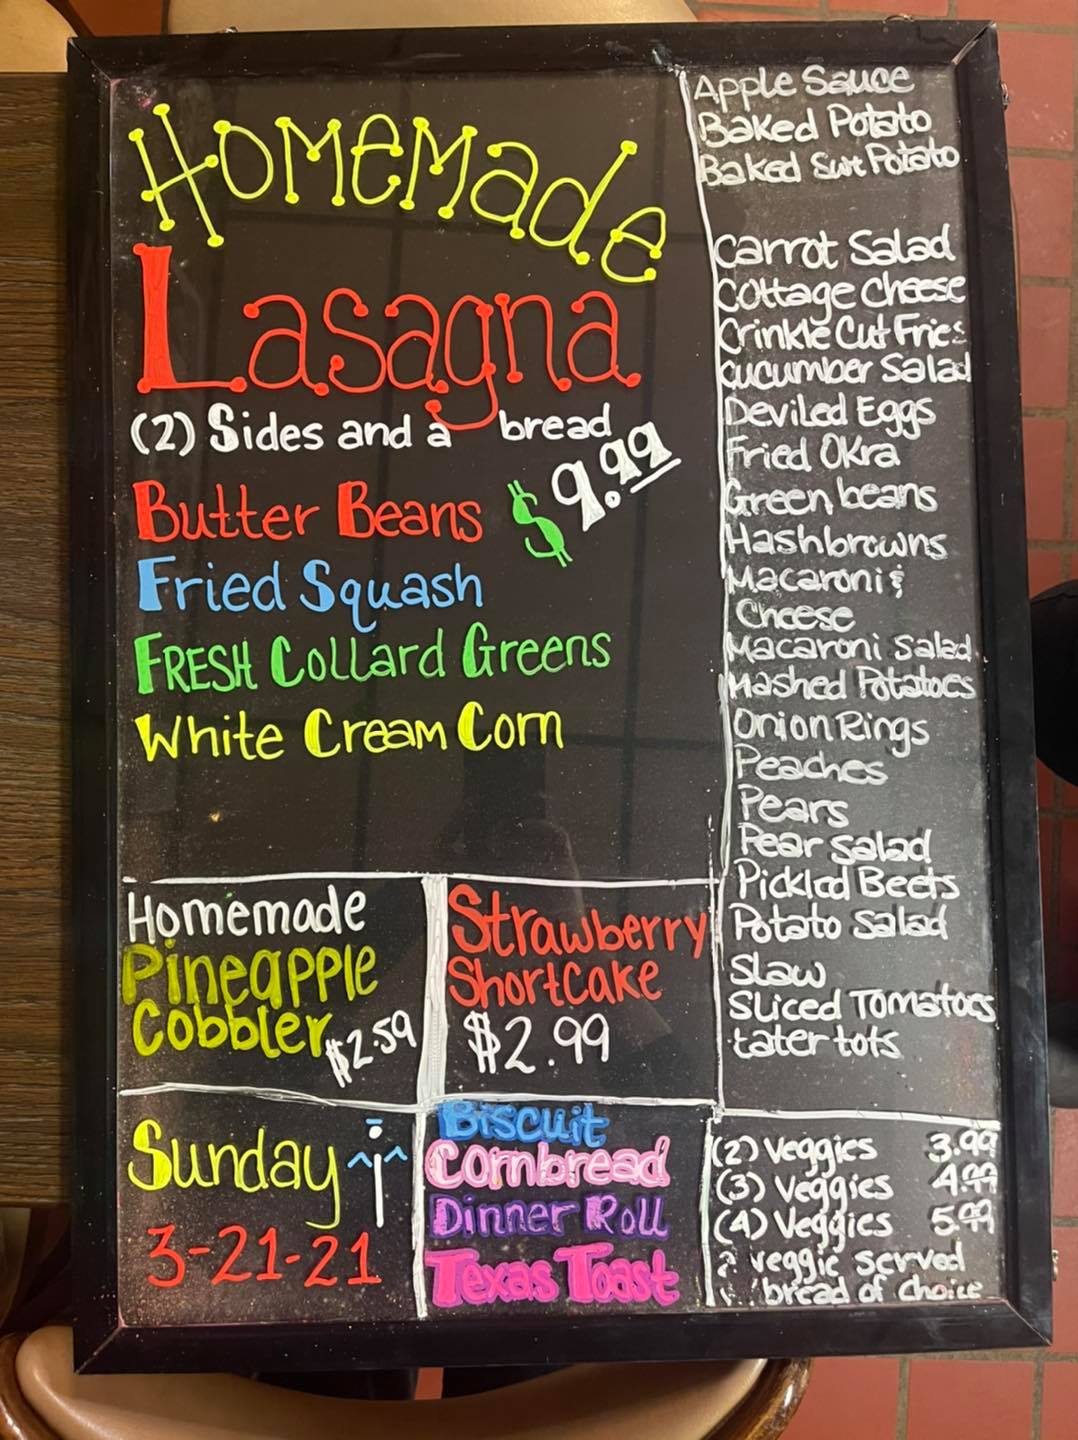 Homemade
Lasagna
(2) Sides and a bread
$9.99
Butter Beans
Fried Squash
FRESH Collard Greens
White Cream Corn
Homemade
Pineapple
Cobbler
$2.59
Strawberry
ShortCake
$2.99
Sunday
3-21-21
Biscuit
Cornbread
Dinner Roll
Texas Toast
Apple Sauce
Baked Potato
Baked Swt Potato
Carrot Salad
Cottage Cheese
Crinkle Cut Fries
Cucumber Salad
Deviled Eggs
Fried Okra
Green beans
Hashbrowns
Macaroni &
Cheese
Macaroni Salad
Mashed Potatoes
Onion Rings
Peaches
Pears
Pear Salad
Pickled Beets
Potato Salad
Slaw
Sliced Tomatoes
tater tots
(2) Veggies 3.99
(3) Veggies 4.99
(4) Veggies 5.99
veggie served
bread of choice